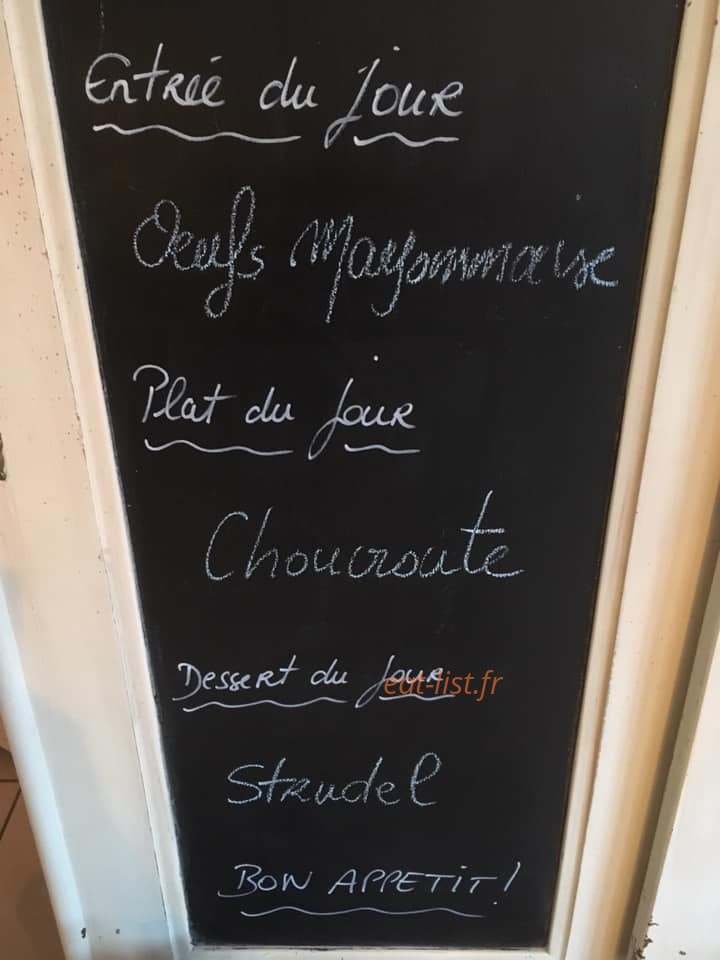 Entrée du jour
Oeufs Mayonnaise
Plat du jour
Choucroute
Dessert du jour
eat-list.fr
Strudel
BON APPETIT!